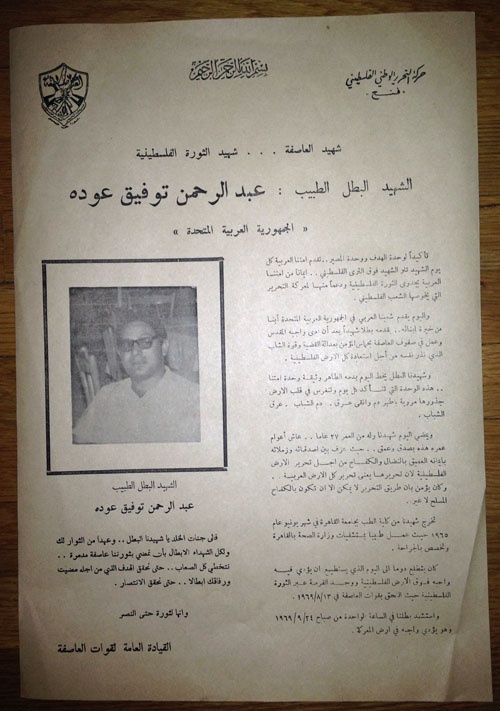 بسم الله الرحمن الرحيم
حركة التحرير الوطني الفلسطيني
- فتح -
شهيد العاصفة . . . شهيد الثورة الفلسطينية
الشهيد البطل الطبيب : عبد الرحمن توفيق عوده
« الجمهورية العربية المتحدة »
تأكيداً لوحدة الهدف ووحدة المصير . . تقدم امتنا العربية كل
يوم الشهيد تلو الشهيد فوق الثرى الفلسطيني . . ايماناً من امتنا
العربية بجدوى الثورة الفلسطينية ودعماً منها لمعركة التحرير
التي يخوضها الشعب الفلسطيني .
واليوم يقدم شعبنا العربي في الجمهورية العربية المتحدة أبناً
من خيرة ابنائه . . يقدمه بطلا شهيداً بعد أن ادى واجبه المقدس
وعمل في صفوف العاصفة بحماس المؤمن بعدالة القضية وقوة الشاب
الذي نذر نفسه من أجل استعادة كل الارض الفلسطينية .
وشهيدنا البطل يخط اليوم بدمه الطاهر وثيقة وحدة امتنا
. . هذه الوحدة التي تتأكد كل يوم وتنغرس في قلب الارض
جذورها مروية بأطهر دم وانقى عرق . . دم الشباب . . عرق
الشباب .
ويمضي اليوم شهيدنا وله من العمر ٢٧ عاما . . عاش أعوام
عمره هذه بصدق وعمق . . حيث عرف بين اصدقائه وزملائه
بايمانه العميق بالنضال والكفاح من اجل تحرير الارض
الفلسطينية لان تحريرها يعني تحرير كل الارض العربية . .
وكان يؤمن بأن طريق التحرير لا يمكن الا ان تكون بالكفاح
المسلح لا غير .
تخرج شهيدنا من كلية الطب بجامعة القاهرة في شهر يونيو عام
١٩٦٥ حيث عمل طبيبا بمستشفيات وزارة الصحة بالقاهرة
وتخصص بالجراحة .
كان يتطلع دوما الى اليوم الذي يستطيع ان يؤدي فيه
واجبه فوق الارض الفلسطينية ووجد الفرصة عبر الثورة
الفلسطينية حيث التحق بقوات العاصفة في ١٩٦٩/٨/١٣ .
واستشهد بطلنا في الساعة الواحدة من صباح ١٩٦٩/٩/٢٤
وهو يؤدي واجبه في ارض المعركة .
الشهيد البطل الطبيب
عبد الرحمن توفيق عوده
فالى جنات الخلد يا شهيدنا البطل . . وعهداً من الثوار لك
ولكل الشهداء الابطال بأن نمضي بثورتنا عاصفة مدمرة . .
نتخطى كل الصعاب . . حتى نحقق الهدف الذي من اجله مضيت
ورفاقك ابطالا . . حتى نحقق الانتصار .
وانها لثورة حتى النصر
القيادة العامة لقوات العاصفة